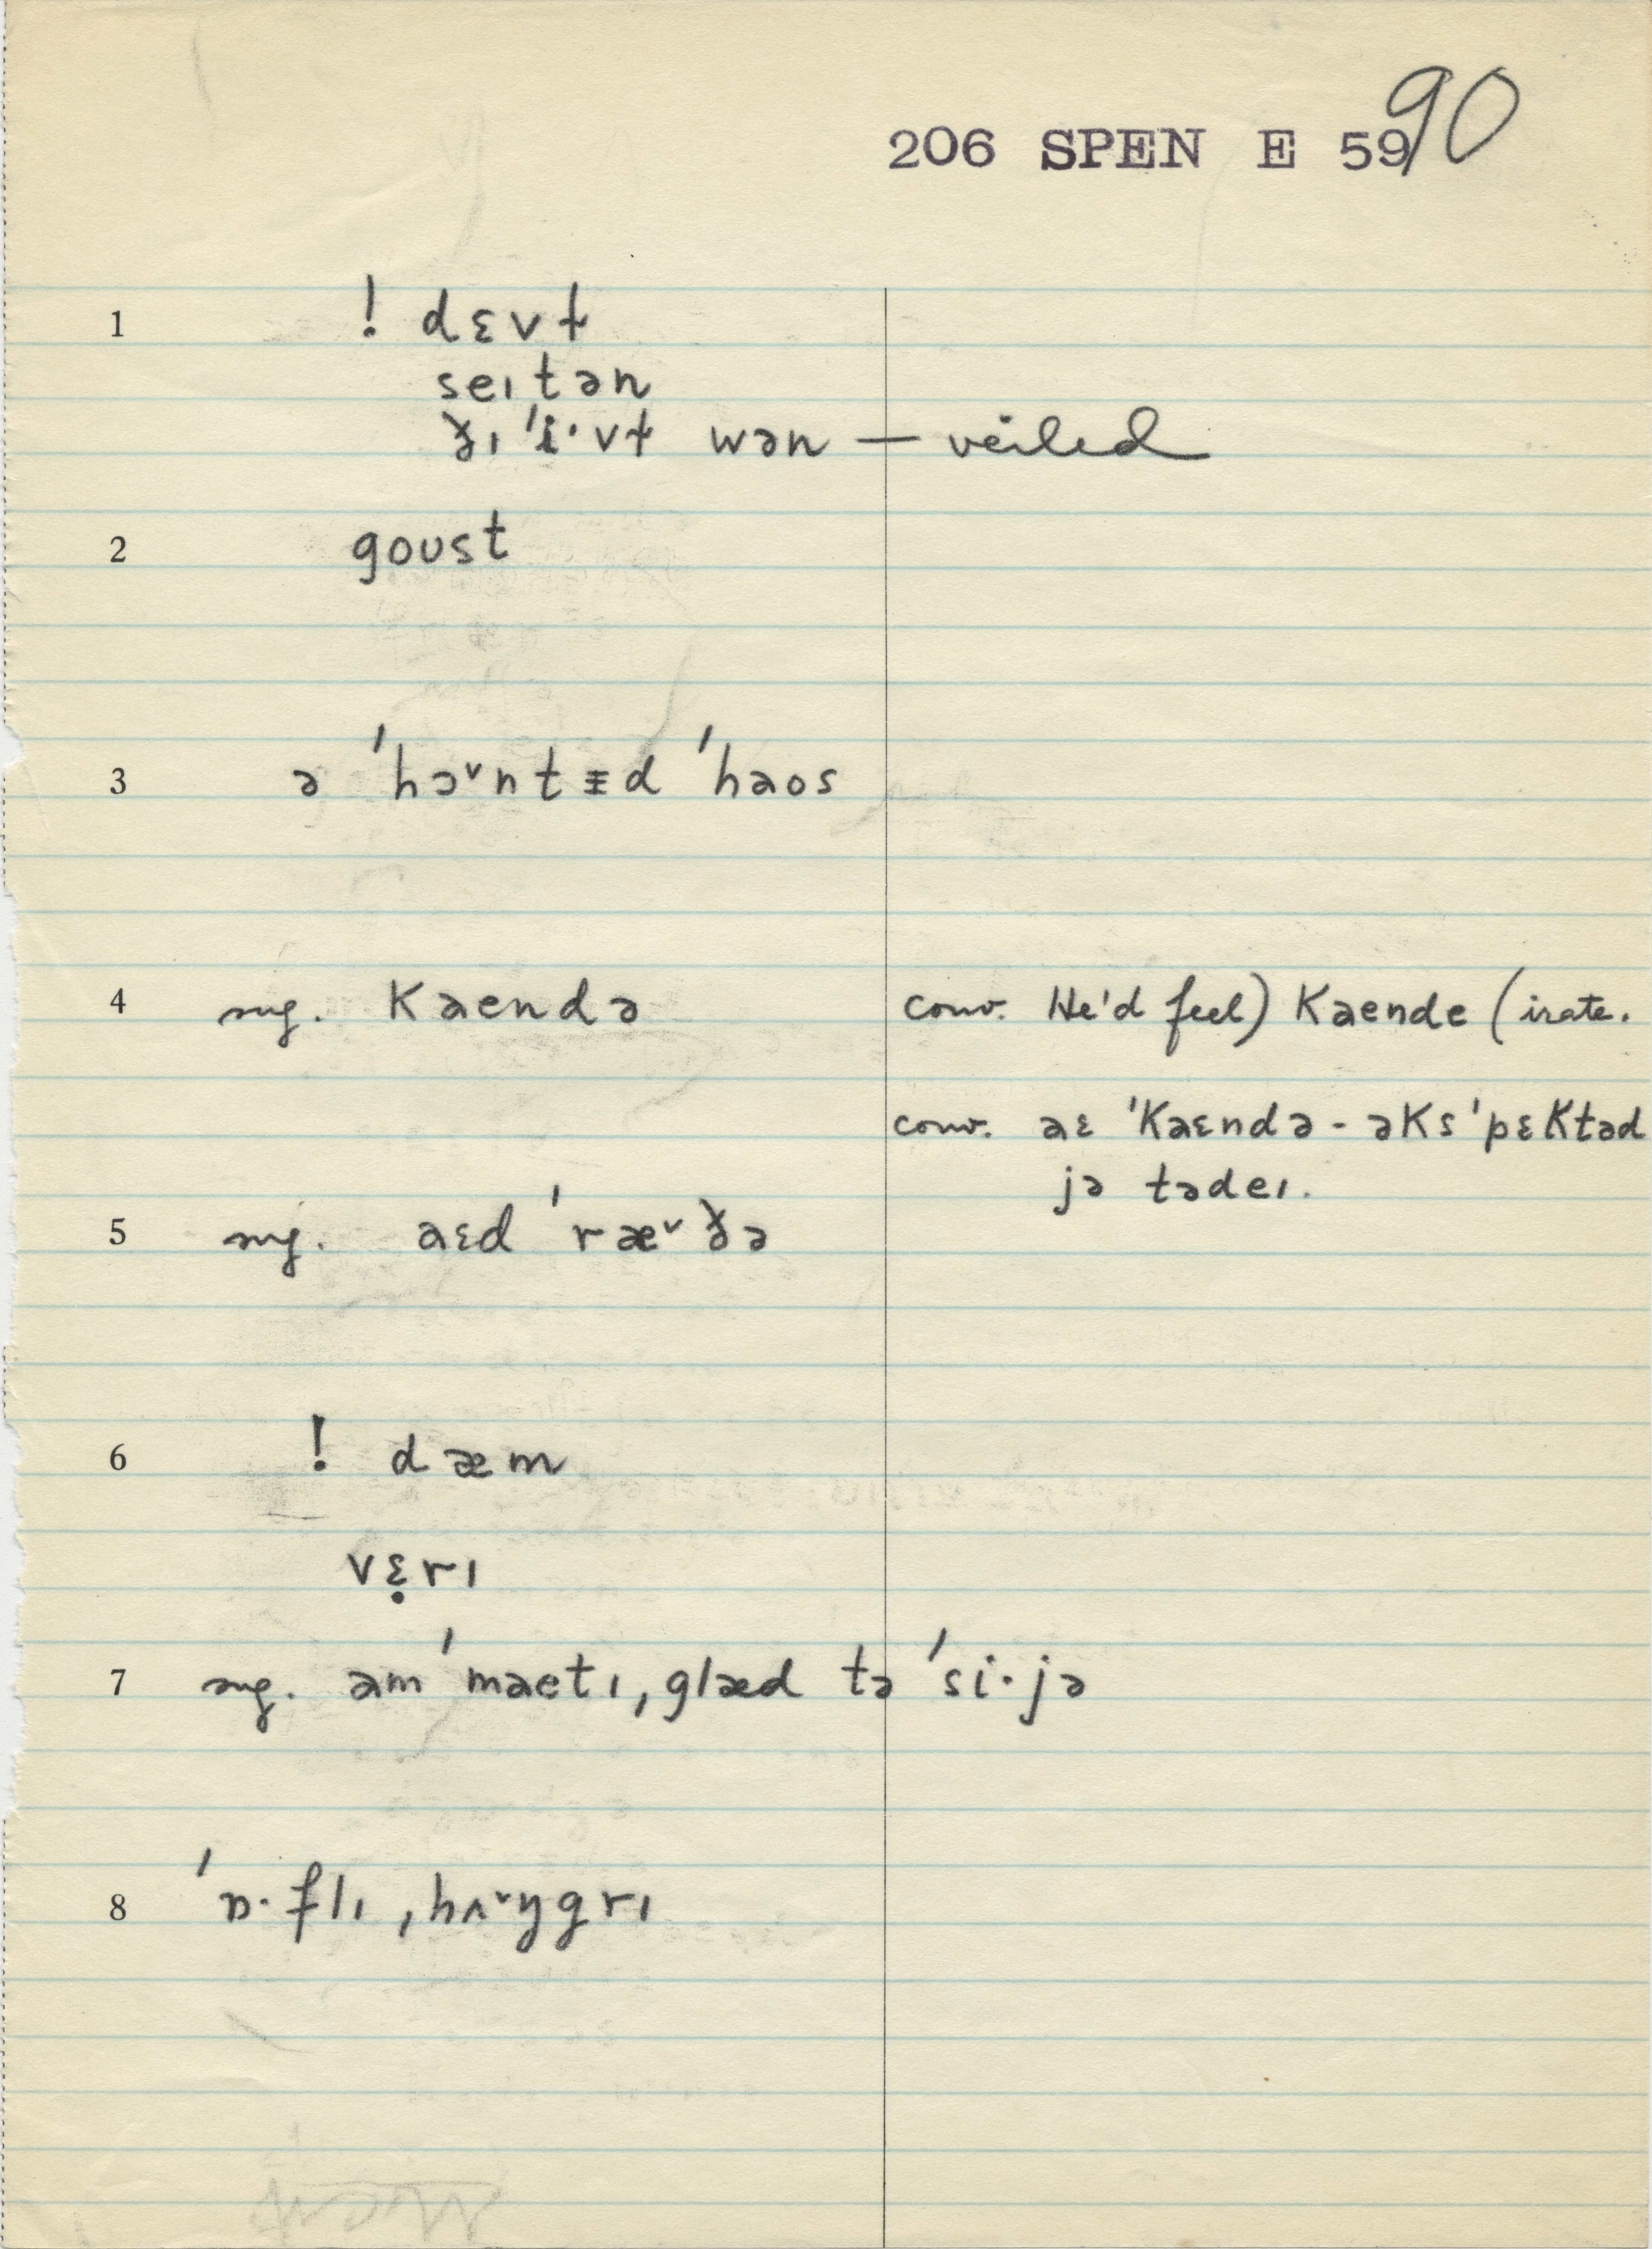 206 SPEN E 59 90
1 ! dɛvɫ
seɪtən
ðɪ ˈi·vɫ wən — veiled
2 goʊst
3 ə ˈhɔ˅ntɪd ˈhaos
4 sug. kaendə conv. He'd feel) kaende (irate.
conv. aɛ ˈkaɛndə - əksˈpɛktəd
jə tədeɪ.
5 sug. aɛd ˈræ˅ðə
6 ! dæm
vɛ̣rɪ
7 sug. am ˈmaetɪ, glæd tə ˈsi·jə
8 ˈɒ·flɪ ˌhʌ˅ŋgrɪ